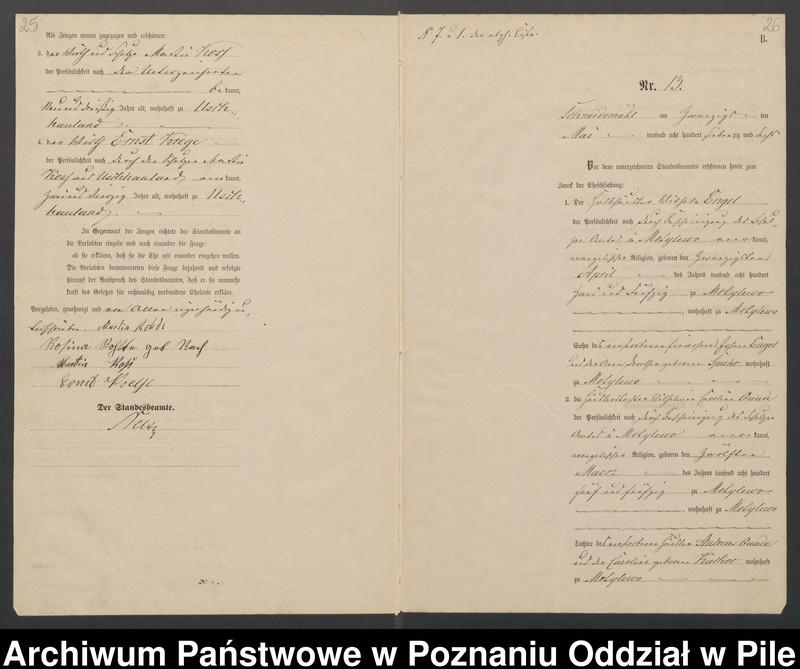 25
Als Zeugen waren zugezogen und erschienen:
3. der Wirth und Schulze Martin Kosch
der Persönlichkeit nach dem Unterzeichneten
bekannt,
neun und dreißig Jahre alt, wohnhaft zu Usch-
hauland
4. der Wirth Ernst Krege
der Persönlichkeit nach durch den Schulzen Martin
Kosch aus Uschhauland anerkannt,
zwei und vierzig Jahre alt, wohnhaft zu Usch-
hauland.
In Gegenwart der Zeugen richtete der Standesbeamte an
die Verlobten einzeln und nach einander die Frage:
ob sie erklären, daß sie die Ehe mit einander eingehen wollen.
Die Verlobten beantworteten diese Frage bejahend und erfolgte
hierauf der Ausspruch des Standesbeamten, daß er sie nunmehr
kraft des Gesetzes für rechtmäßig verbundene Eheleute erkläre.
Vorgelesen, genehmigt und von Allen eigenhändig un-
terschrieben. Martin
Rosina geb.
Martin
Ernst
Der Standesbeamte.
26
N 7. u 1. des
B.
Nr. 13.
Schneidemühl am zwanzigsten
Mai tausend acht hundert siebenzig und sechs
Vor dem unterzeichneten Standesbeamten erschienen heute zum
Zweck der Eheschließung:
1. Der Wilhelm Engel
der Persönlichkeit nach durch Bescheinigung des Schul-
zen Amtes in Motylewo anerkannt,
evangelischer Religion, geboren den zwanzigsten
April des Jahres tausend acht hundert
zwei und fünfzig zu Motylewo
, wohnhaft zu Motylewo
Sohn des verstorbenen Engel
und der geborenen wohnhaft
zu Motylewo
2. die Wilhelmine Caroline Quade
der Persönlichkeit nach durch Bescheinigung des Schulzen
Amtes in Motylewo anerkannt,
evangelischer Religion, geboren den zwölften
Maerz des Jahres tausend acht hundert
fünf und fünfzig zu Motylewo
, wohnhaft zu Motylewo
Tochter des verstorbenen Andreas Quade
und der Caroline geborenen wohnhaft
zu Motylewo
Archiwum Państwowe w Poznaniu Oddział w Pile